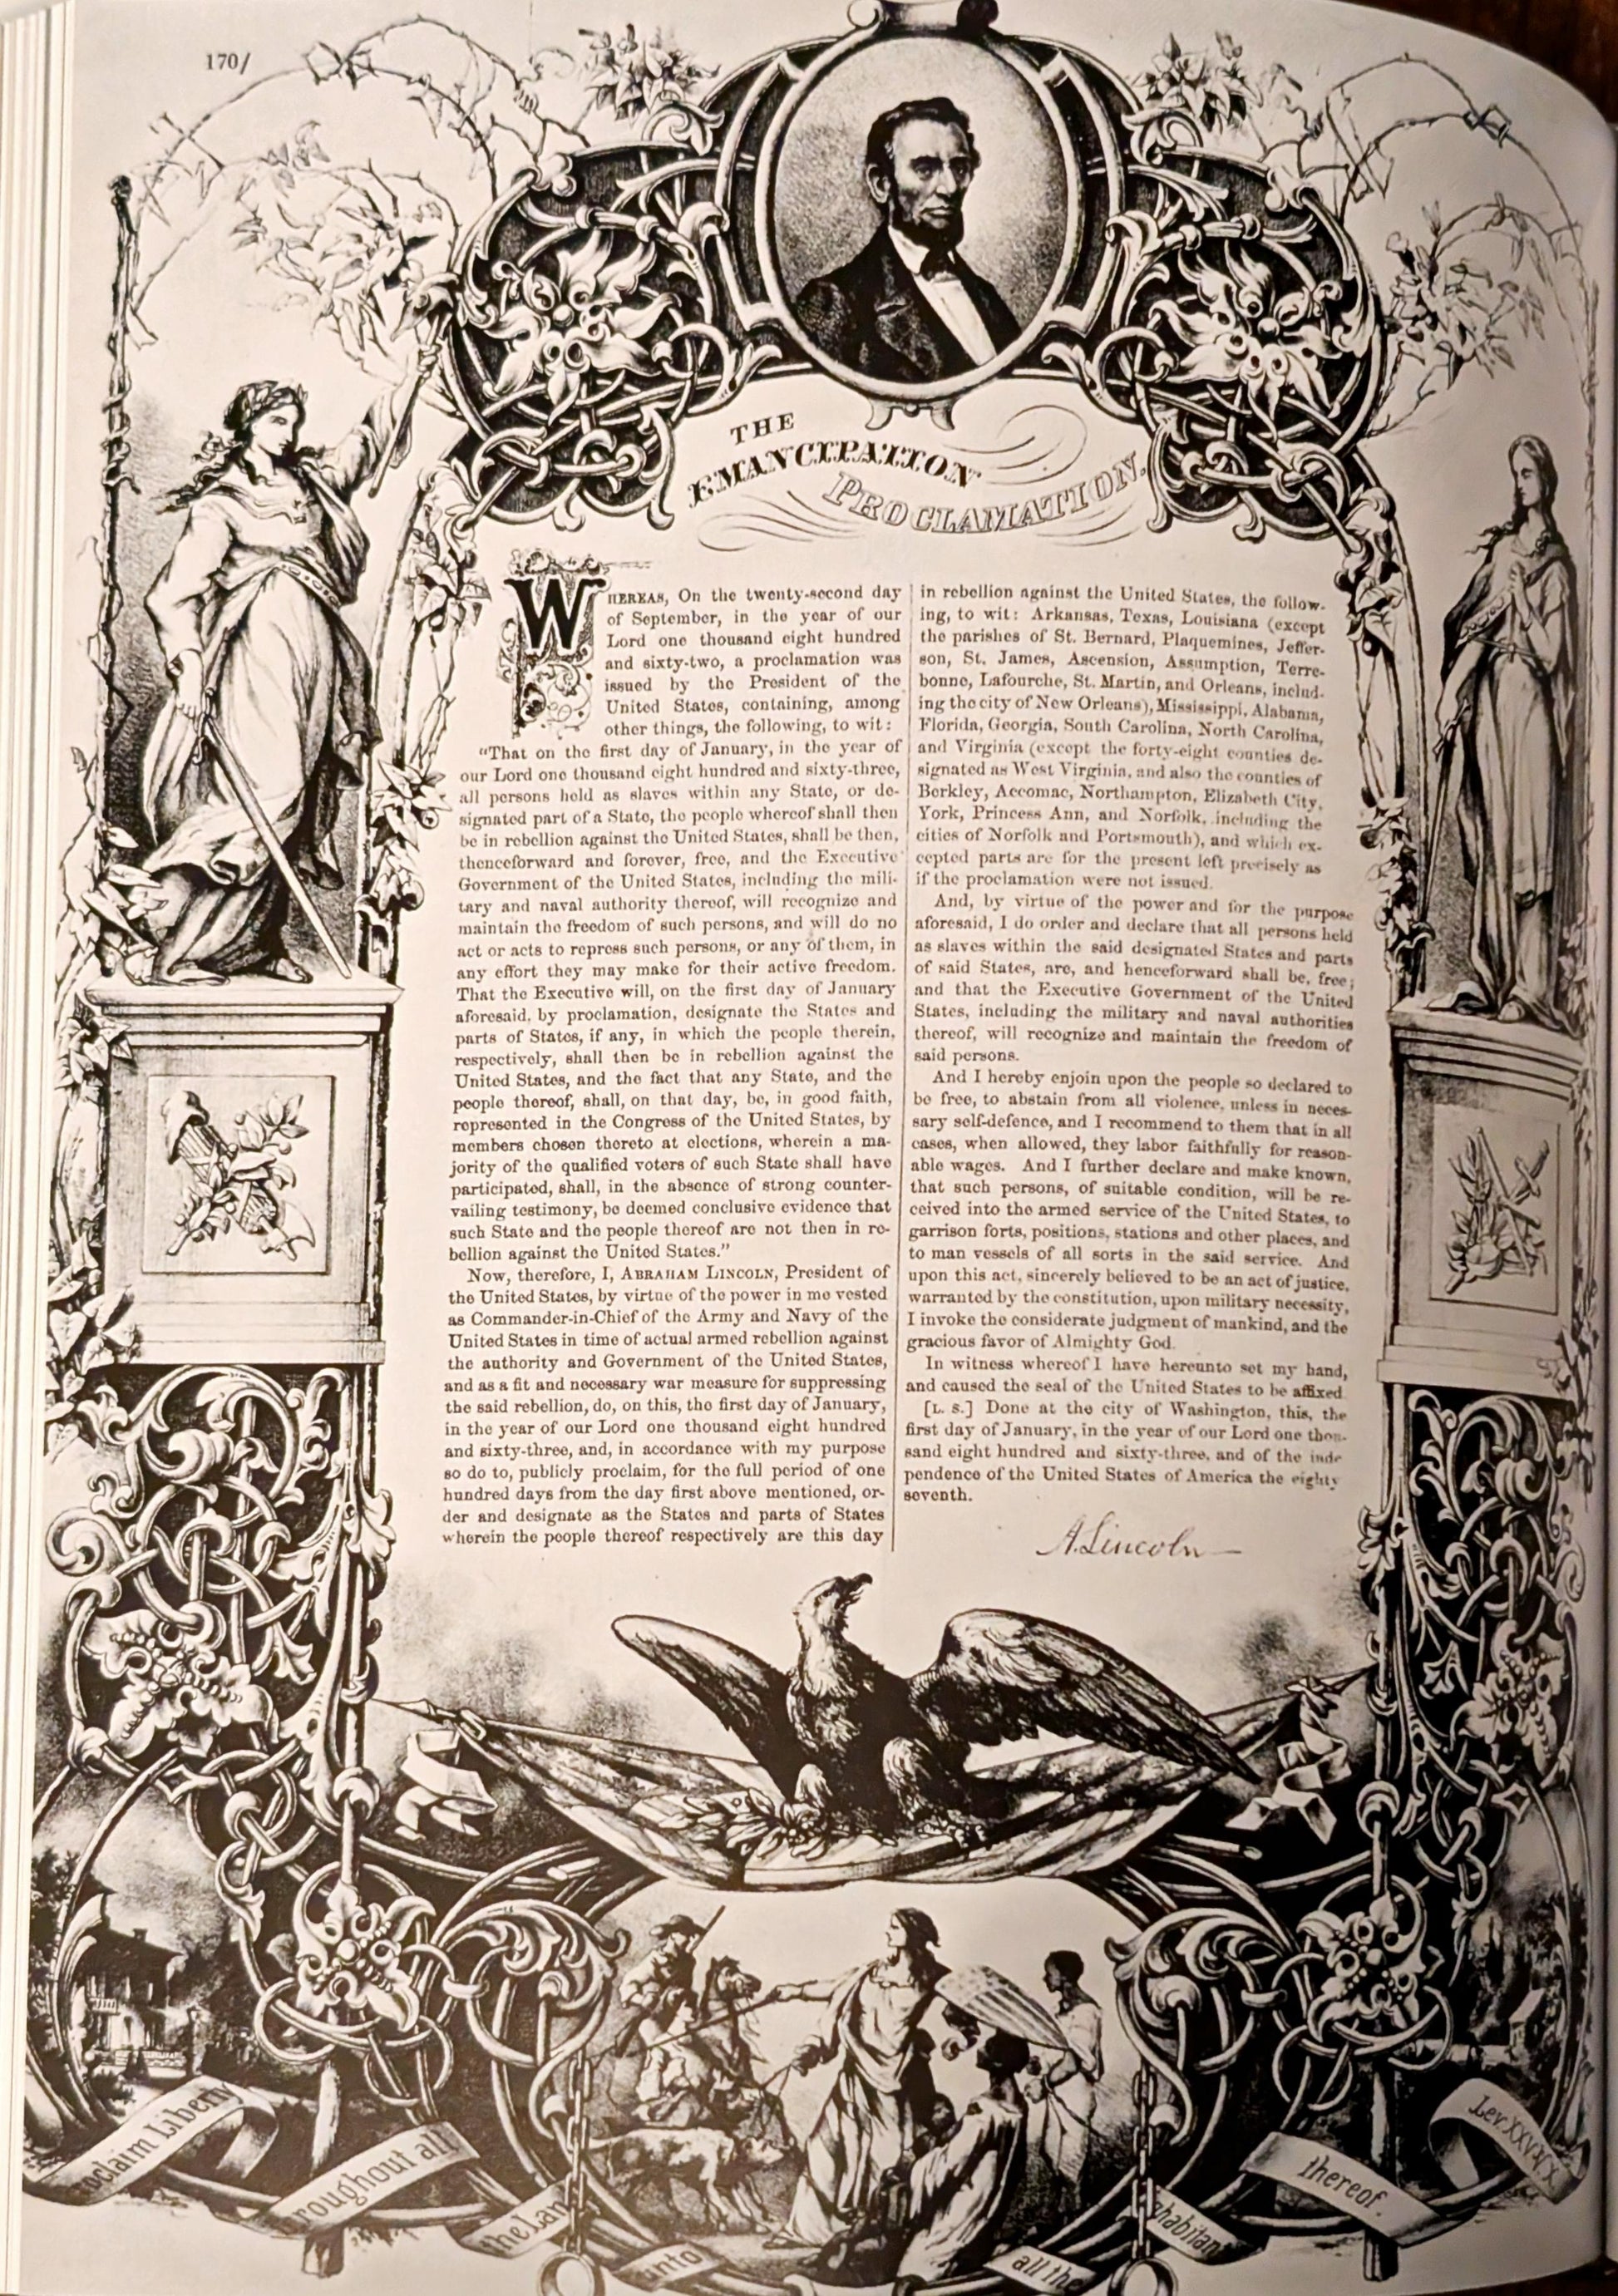 170/
THE
EMANCIPATION
PROCLAMATION.
WHEREAS, On the twenty-second day
of September, in the year of our
Lord one thousand eight hundred
and sixty-two, a proclamation was
issued by the President of the
United States, containing, among
other things, the following, to wit:
"That on the first day of January, in the year of
our Lord one thousand eight hundred and sixty-three,
all persons held as slaves within any State, or de-
signated part of a State, the people whereof shall then
be in rebellion against the United States, shall be then,
thenceforward and forever, free, and the Executive
Government of the United States, including the mili-
tary and naval authority thereof, will recognize and
maintain the freedom of such persons, and will do no
act or acts to repress such persons, or any of them, in
any effort they may make for their active freedom.
That the Executive will, on the first day of January
aforesaid, by proclamation, designate the States and
parts of States, if any, in which the people therein,
respectively, shall then be in rebellion against the
United States, and the fact that any State, and the
people thereof, shall, on that day, be, in good faith,
represented in the Congress of the United States, by
members chosen thereto at elections, wherein a ma-
jority of the qualified voters of such State shall have
participated, shall, in the absence of strong counter-
vailing testimony, be deemed conclusive evidence that
such State and the people thereof are not then in re-
bellion against the United States."
Now, therefore, I, ABRAHAM LINCOLN, President of
the United States, by virtue of the power in me vested
as Commander-in-Chief of the Army and Navy of the
United States in time of actual armed rebellion against
the authority and Government of the United States,
and as a fit and necessary war measure for suppressing
the said rebellion, do, on this, the first day of January,
in the year of our Lord one thousand eight hundred
and sixty-three, and, in accordance with my purpose
so do to, publicly proclaim, for the full period of one
hundred days from the day first above mentioned, or-
der and designate as the States and parts of States
wherein the people thereof respectively are this day
in rebellion against the United States, the follow-
ing, to wit: Arkansas, Texas, Louisiana (except
the parishes of St. Bernard, Plaquemines, Jeffer-
son, St. James, Ascension, Assumption, Terre-
bonne, Lafourche, St. Martin, and Orleans, includ-
ing the city of New Orleans), Mississippi, Alabama,
Florida, Georgia, South Carolina, North Carolina,
and Virginia (except the forty-eight counties de-
signated as West Virginia, and also the counties of
Berkley, Accomac, Northampton, Elizabeth City,
York, Princess Ann, and Norfolk, including the
cities of Norfolk and Portsmouth), and which ex-
cepted parts are for the present left precisely as
if the proclamation were not issued.
And, by virtue of the power and for the purpose
aforesaid, I do order and declare that all persons held
as slaves within the said designated States and parts
of said States, are, and henceforward shall be, free;
and that the Executive Government of the United
States, including the military and naval authorities
thereof, will recognize and maintain the freedom of
said persons.
And I hereby enjoin upon the people so declared to
be free, to abstain from all violence, unless in neces-
sary self-defence, and I recommend to them that in all
cases, when allowed, they labor faithfully for reason-
able wages. And I further declare and make known,
that such persons, of suitable condition, will be re-
ceived into the armed service of the United States, to
garrison forts, positions, stations and other places, and
to man vessels of all sorts in the said service. And
upon this act, sincerely believed to be an act of justice,
warranted by the constitution, upon military necessity,
I invoke the considerate judgment of mankind, and the
gracious favor of Almighty God.
In witness whereof I have hereunto set my hand,
and caused the seal of the United States to be affixed
[L. S.] Done at the city of Washington, this, the
first day of January, in the year of our Lord one thou-
sand eight hundred and sixty-three, and of the inde
pendence of the United States of America the eighty
seventh.
A. Lincoln
roclaim Liberty
roughout all
the Lan
unto
all the
nhabitant
thereof
Lev. XXV. X.